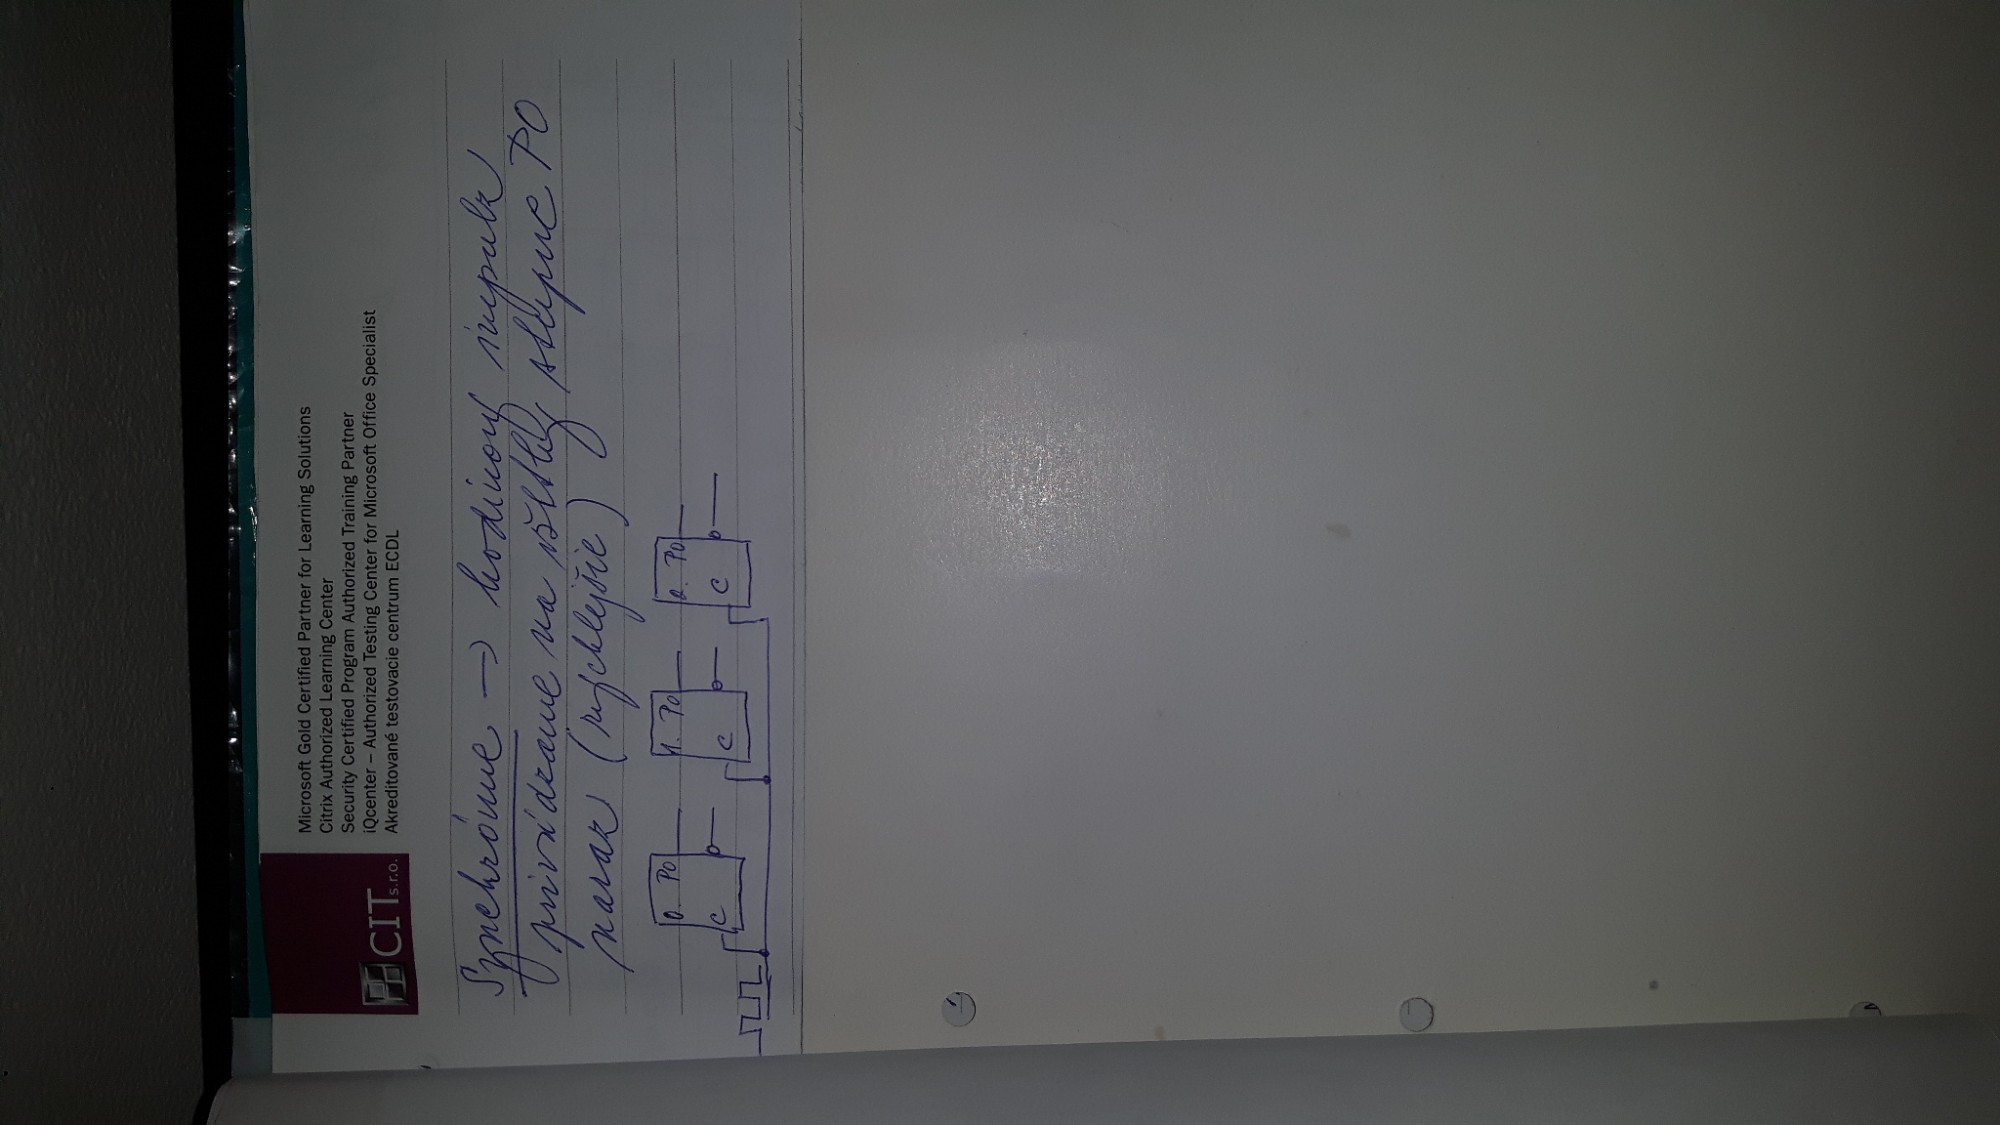 CIT s.r.o.
Microsoft Gold Certified Partner for Learning Solutions
Citrix Authorized Learning Center
Security Certified Program Authorized Training Partner
iQcenter – Authorized Testing Center for Microsoft Office Specialist
Akreditované testovacie centrum ECDL
Synchrónne → hodinový impulz
privádzame na všetky stupne PO
naraz (rýchlejšie)
0. PO 1. PO 2. PO
C C C